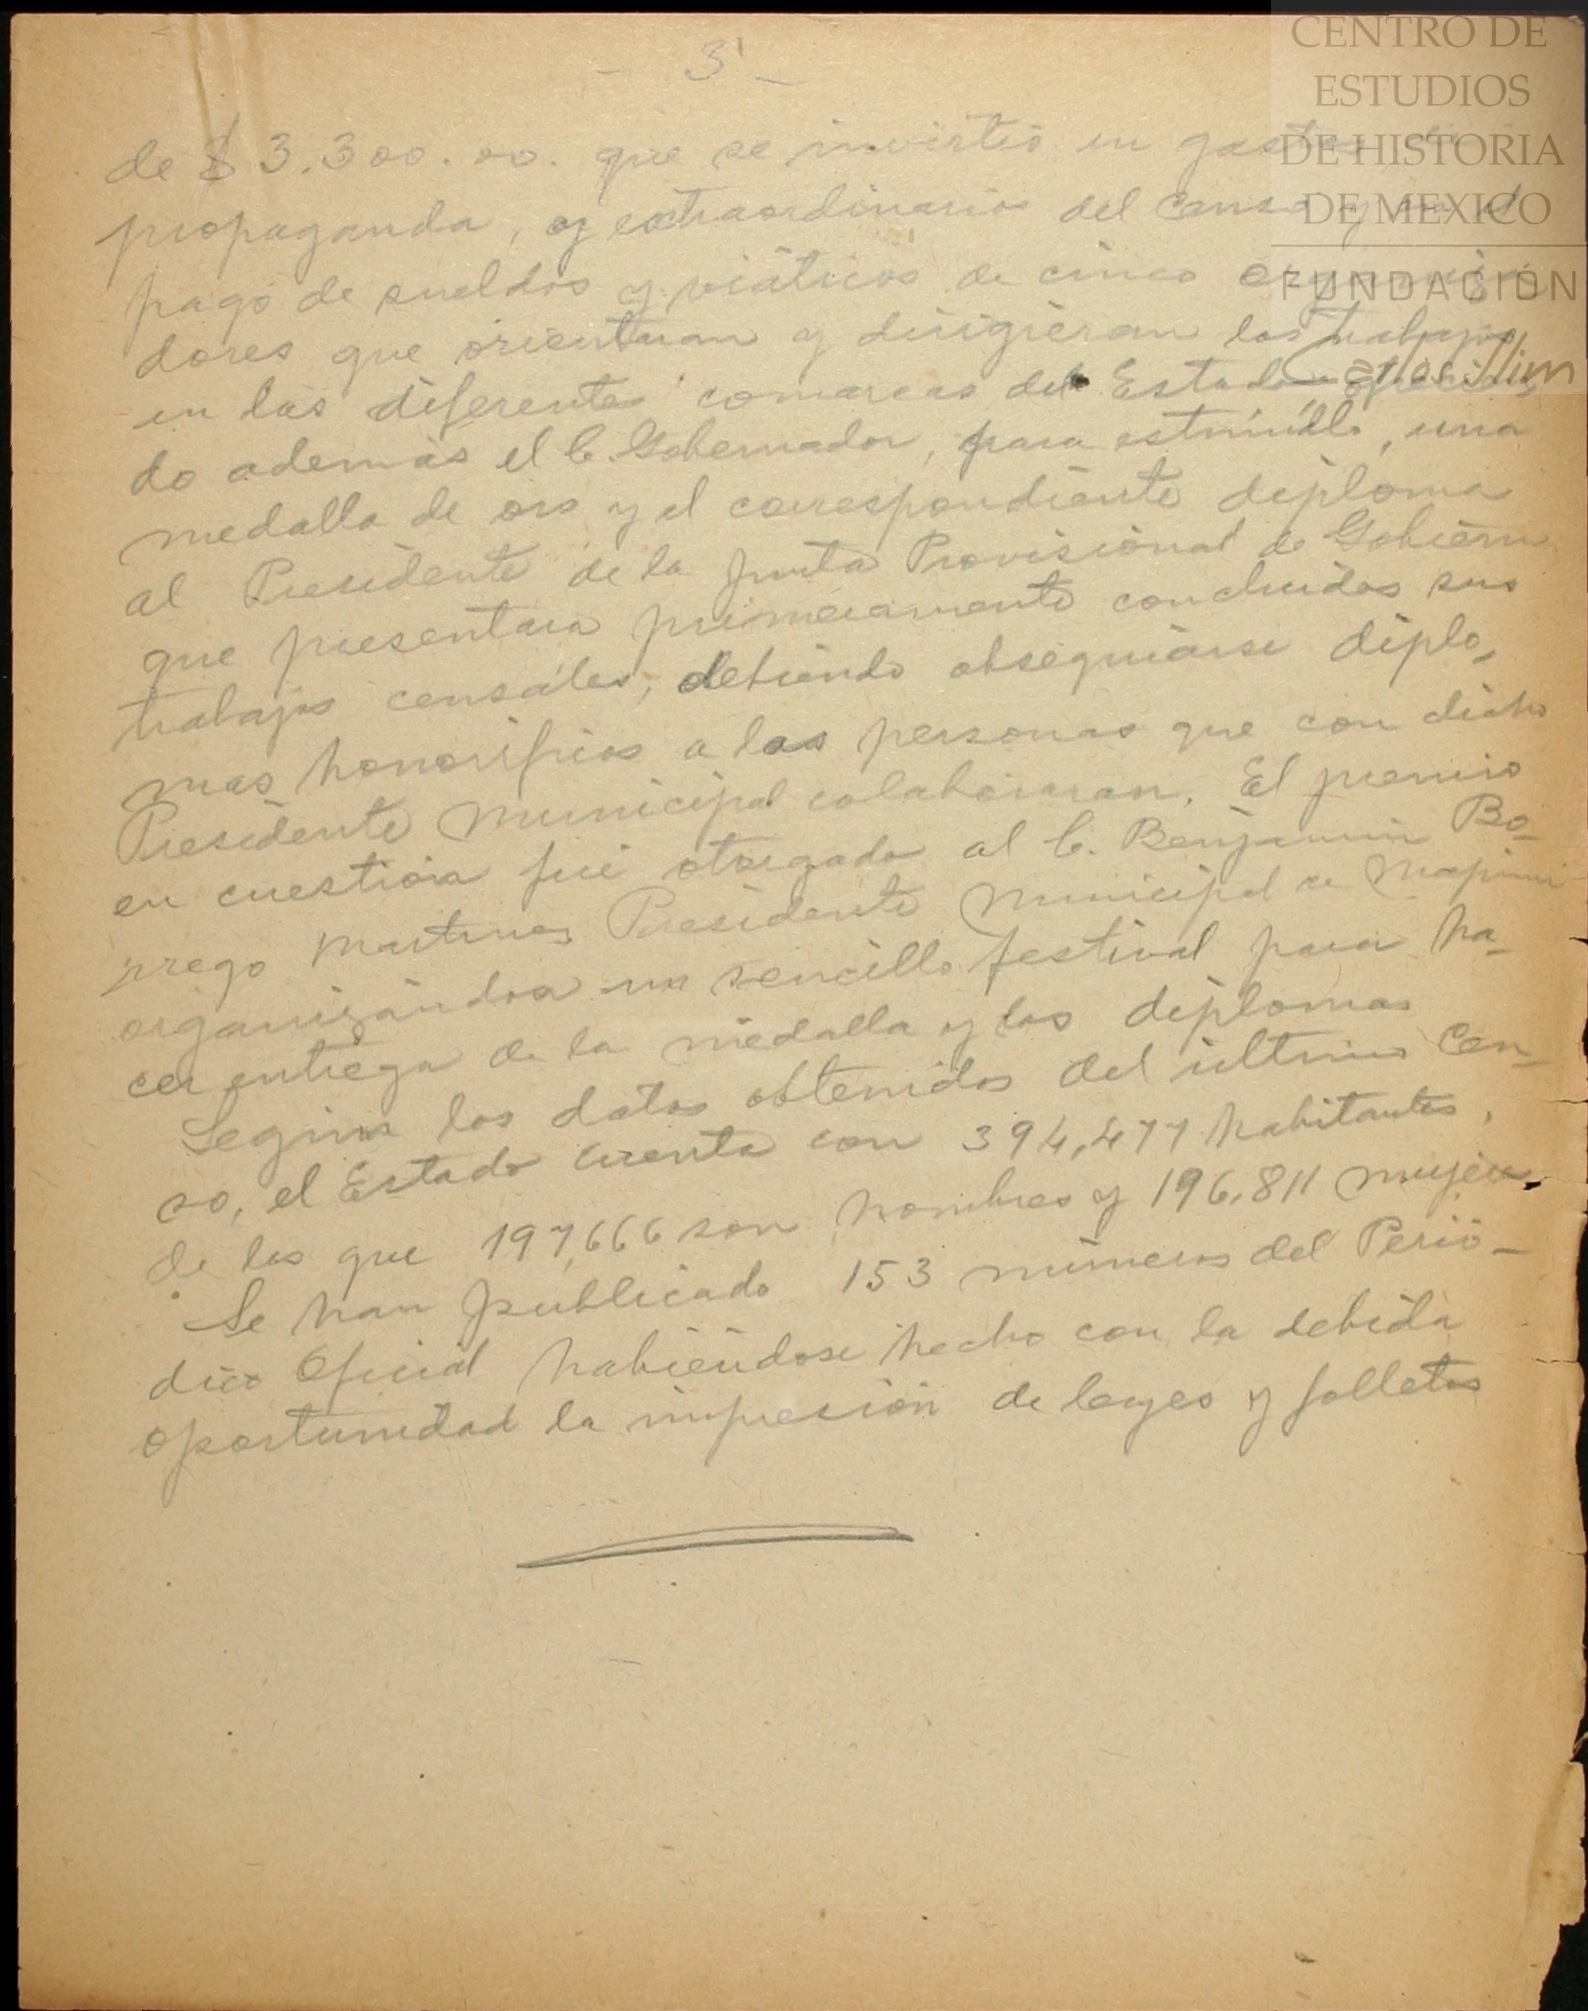 - 3 -
CENTRO DE
ESTUDIOS
DE HISTORIA
DE MEXICO
FUNDACIÓN
Carlos Slim
de $ 3.300.00. que se invirtió en gastos de
propaganda, y extraordinarios del Censo y en el
pago de sueldos y viáticos de cinco organiza
dores que orientaran y dirigieran los trabajos
en las diferentes comarcas del Estado, ofrecien
do además el C. Gobernador, para estímulo, una
medalla de oro y el correspondiente diploma
al Presidente de la Junta Provisional de Gobierno
que presentara primeramente concluidos sus
trabajos censales, debiendo obsequiarse diplo-
mas honoríficos a las personas que con dicho
Presidente Municipal colaboraran. El premio
en cuestión fué otorgado al C. Benjamin Bo-
rrego Martinez Presidente Municipal de Mapimi
organizándose un sencillo festival para ha-
cer entrega de la medalla y los diplomas
Segun los datos obtenidos del último Cen-
so, el Estado cuenta con 394,477 habitantes,
de los que 197,666 son hombres y 196,811 mujeres.
Se han publicado 153 números del Perió-
dico Oficial habiéndose hecho con la debida
oportunidad la impresión de leyes y folletos